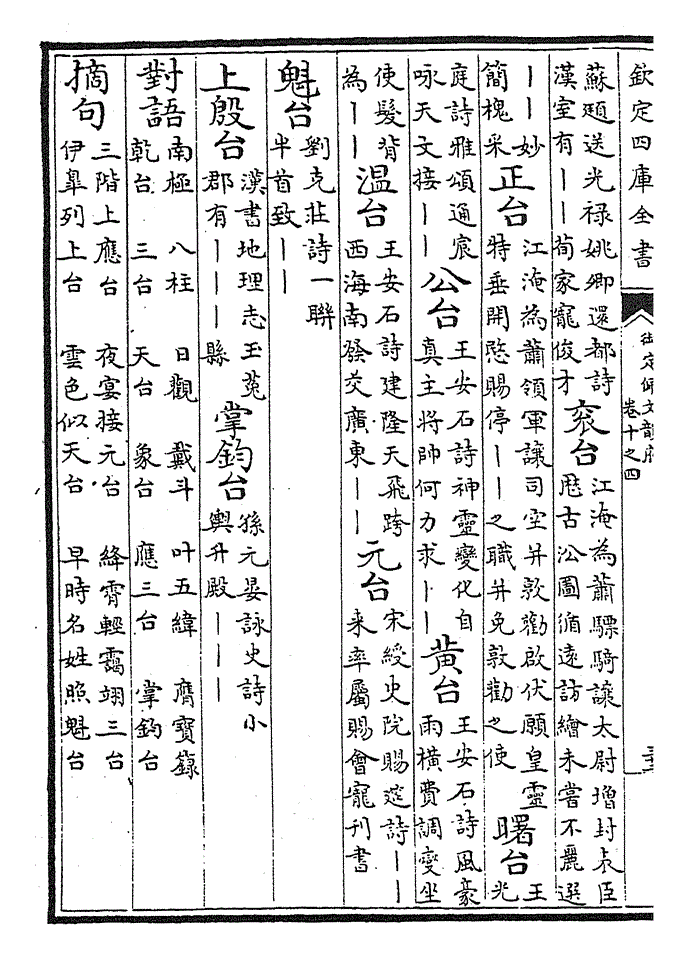 欽定四庫全書
御定佩文韻府 卷十之四
蘇頲送光禄姚卿還都詩漢室有——荀家寵俊才
衮台
江淹為蕭驃騎讓太尉增封表臣歴古公圖循遠訪繪未嘗不麗選——妙簡槐采
正台
江淹為蕭領軍讓司空并敦勸啟伏願皇靈特垂開愍賜停——之職并免敦勸之使
曙台
王光庭詩雅頌通宸咏天文接——
公台
王安石詩神靈變化自真主將帥何力求——
黄台
王安石詩風豪雨横費調燮坐使髮背為——
温台
王安石詩建隆天飛跨西海南發交廣東——
元台
宋綬史院賜筵詩——来率屬賜會寵刊書
魁台
劉克莊詩一聯半首致——
上殷台
漢書地理志玉菟郡有———縣
掌鈞台
孫元晏詠史詩小輿升殿———
對語
南極 八柱 日觀 戴斗 叶五緯 膺寶籙
乾台 三台 天台 象台 應三台 掌鈞台
摘句
三階上應台 夜宴接元台 絳霄輕靄翊三台
伊臯列上台 雲色似天台 早時名姓照魁台